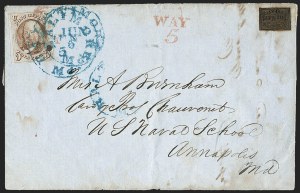 BALTIMORE
JUN
6
Md.
WAY
5
Mrs A Burnham
Care Prof Chauvenet
U S Naval School
Annapolis
Md